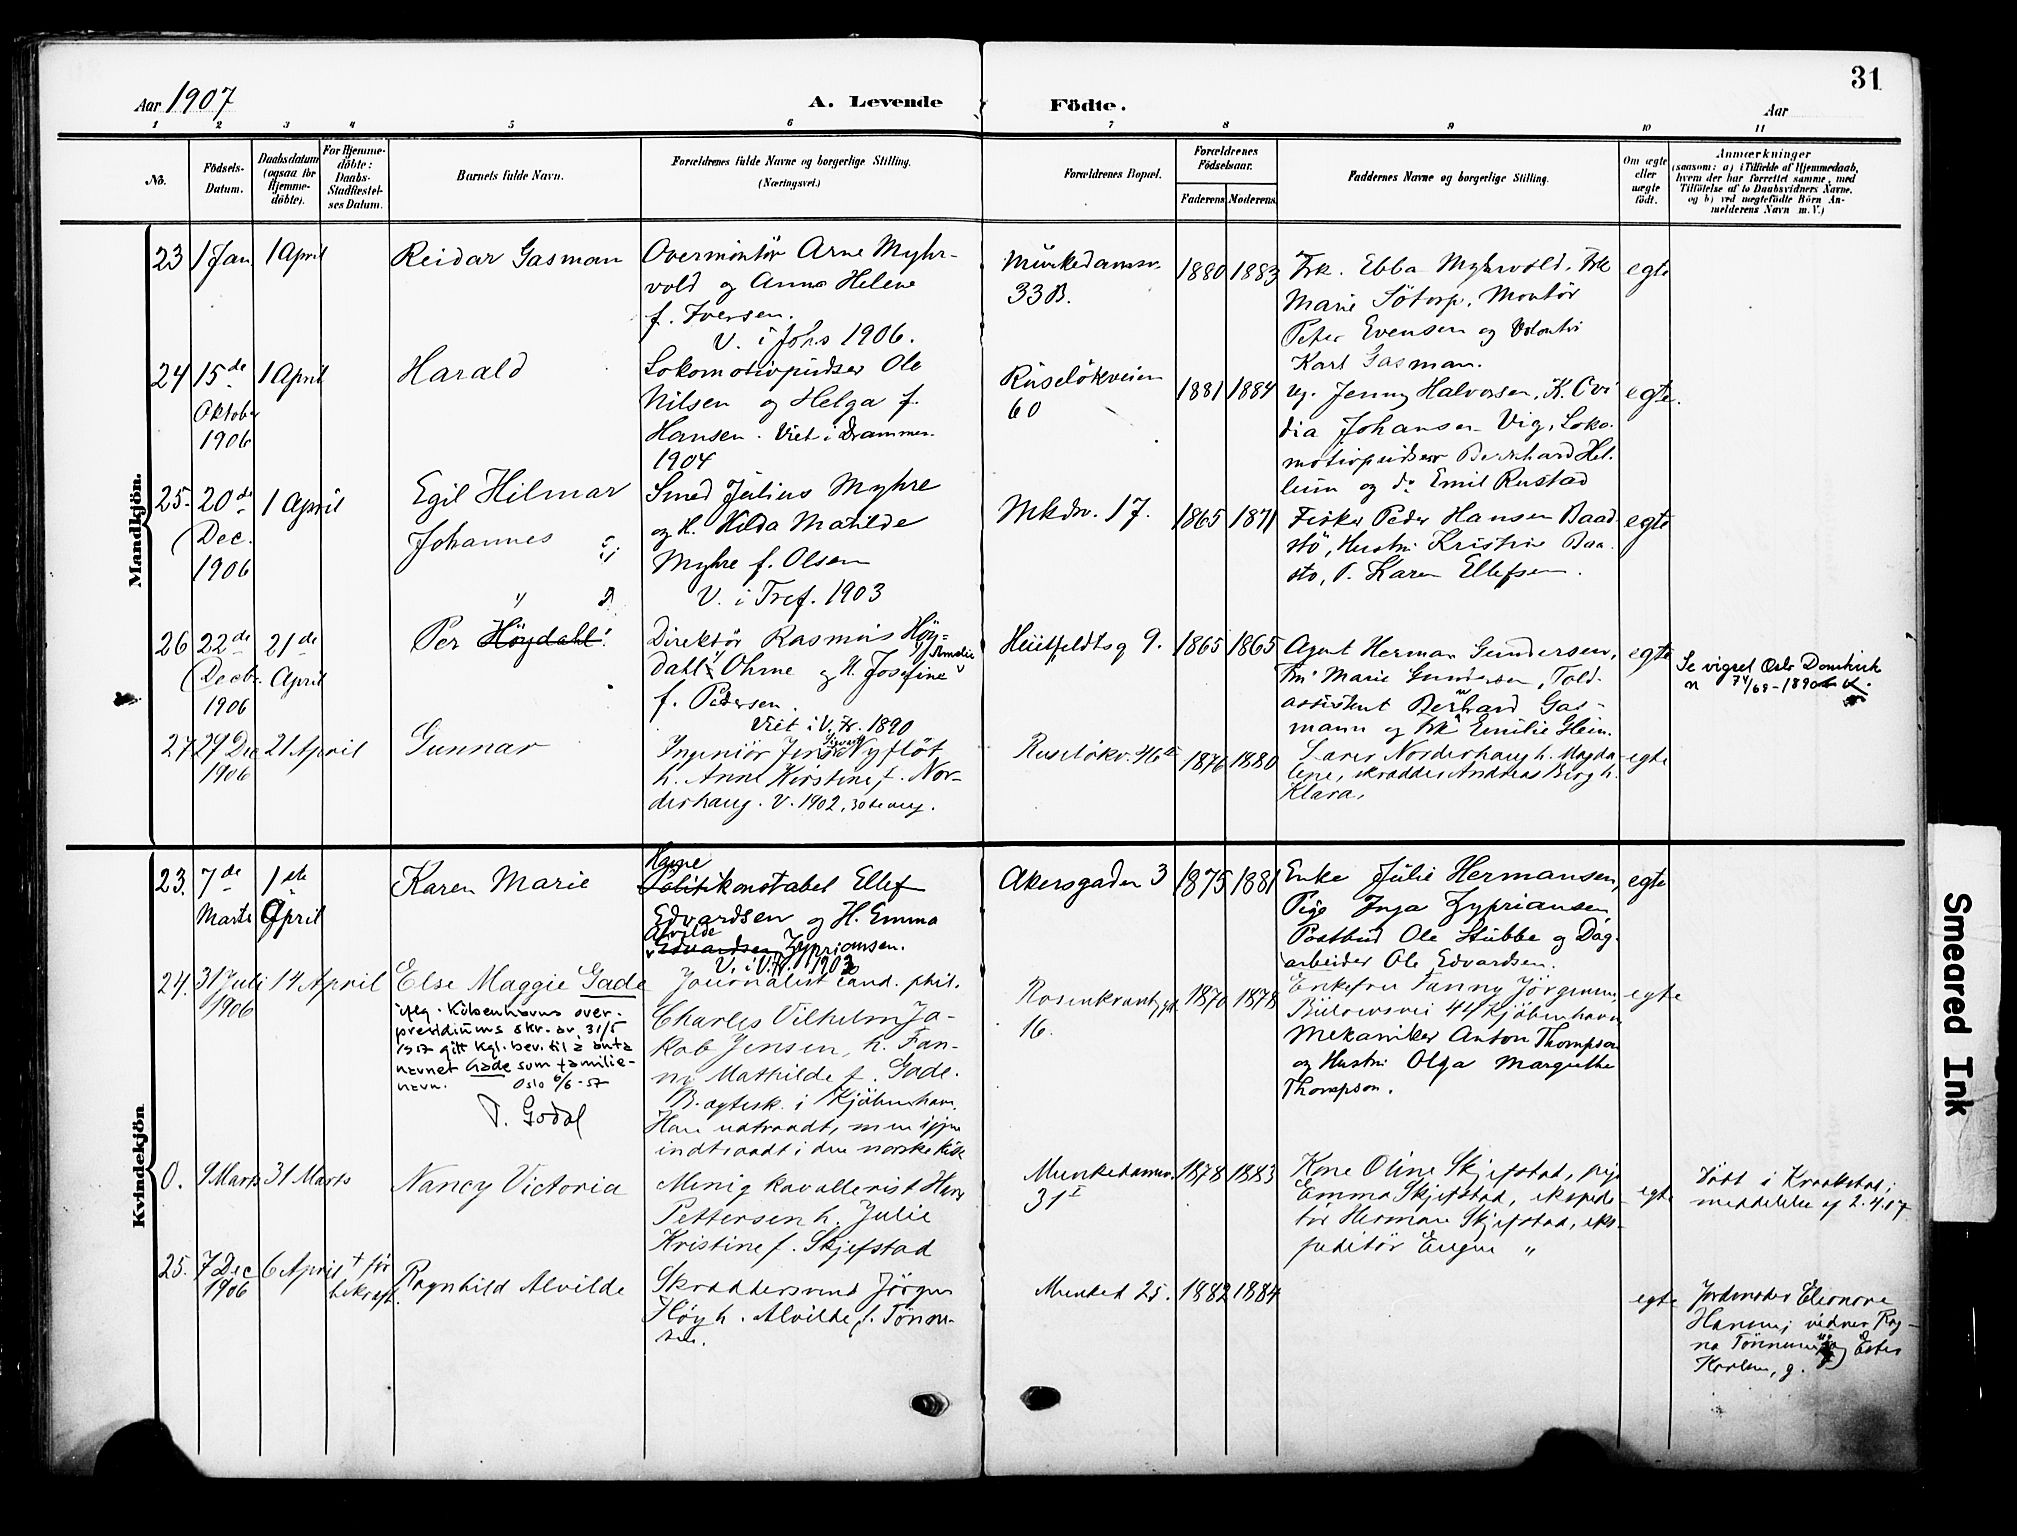 Aar 1907
A. Levende
Födte.
Aar
31
1 2 3 4 5 6 7 8 9 10 11
No.
Födsels-
Datum.
Daabsdatum
(ogsaa for
Hjemme-
döbte).
For Hjemme-
döbte:
Daabs-
Stadfæstel-
ses Datum.
Barnets fulde Navn.
Forældrenes fulde Navne og borgerlige Stilling.
(Næringsvei.)
Forældrenes Bopæl.
Forældrenes
Födselsaar.
Faderens
Moderens
Faddernes Navne og borgerlige Stilling.
Om ægte
eller
uægte
födt.
Anmærkninger
(saasom: a) i Tilfælde af Hjemmedaab,
hvem der har forrettet samme, med
Tilföielse af to Daabsvidners Navne.
og b) ved uægtefödte Börn An-
melderens Navn m. V.)
Mandkjön.
23 1 Jan 1 April
Reidar Gasman
Overmontör Arne Myhr-
vold og Anna Helene
f. Iversen.
V. i Johs 1906.
Munkedamsv.
33B.
1880 1883
Frk. Ebba Myhrvold, Frk
Marie Sötorp, Montör
Peter Evensen og Volontör
Karl Gasman.
egte
24 15de Oktober 1906 1 April
Harald
Lokomotivpudser Ole
Nilsen og Helga f.
Hansen. Viet i Drammen
1904
Ruselökveien
60
1881 1884
Pg. Jenny Halvorsen, K. Ovi
dia Johansen Vig, Loko-
motivpudser Bernhard Hel-
lum og do Emil Rustad
egte.
25. 20de Dec. 1906 1 April
Egil Hilmar
Johannes
Smed Julius Myhre
og H. Hilda Matilde
Myhre f. Olsen
V. i Tref. 1903
Mkdv. 17.
1865 1871
Fisker Peder Hansen Baad
stö, Hustru Kristine Baa-
stö, P. Karen Ellefsen.
egte
26 22de Decbr. 1906 21de April
Per Höydahl
Direktör Rasmus Höy-
dahl Ohme og H. Josefine Amalie
f. Pedersen.
Viet i V. Fr. 1890
Huitfeldtsg 9.
1865 1865
Agent Herman Gundersen,
Fru Marie Gundersen, Told-
assistent Bernhard Gas-
mann og Frk Emilie Heim
egte
Se vigsel Oslo Domkirk
n 74/69-1890
27 29 Dec 1906 21 April
Gunnar
Ingeniör Jens Sigvart Nyflöt
h. Anne Kirstine f. Nor-
derhaug. V. 1902, 30te aug.
Ruselökv. 46 II
1876 1880
Lars Norderhaug h. Magda-
lene, skrædder Andreas Berg h.
Klara.
egte
Kvindekjön
23. 7de Marts 1ste April
Karen Marie
Havne
Politikonstabel Ellef
Edvardsen og H. Emma
Alvilde
Edvardsen Zypriansen.
V. i V. Fr. 1903
Akersgaden 3
1875 1881
Enke Julie Hermansen,
Pige Inga Zypriansen
Postbud Ole Stubbe og Dag-
arbeider Ole Edvardsen.
egte
24. 31 Juli 1906 14 April
Else Maggie Gade
iflg. Köbenhavns over-
presidiums skr. av 31/5
1957 gitt kgl. bev. til å anta
navnet Gade som familie-
navn. Oslo 6/6-57
P. Godal
Journalist cand. phil.
Charles Vilhelm Ja-
kob Jensen, h. Fan-
ny Mathilde f. Gade.
B. ægtesk. i Kjöbenhavn.
Han udtraadt, men igjen
indtraadt i den norske kirke
Rosenkrantzgd.
16.
1870 1878
Enkefru Fanny Jörgensen,
Bülowsvei 44 Kjöbenhavn,
Mekaniker Anton Thompson
og Hustru Olga Margrethe
Thompson.
egte
0. 9 Marts 31 Marts
Nancy Victoria
Menig kavallerist Hans
Pettersen h. Julie
Kristine f. Skjefstad
Munkedamsv.
31 I
1878 1883
Kone Oline Skjefstad, pige
Emma Skjefstad, ekspedi-
tör Herman Skjefstad, eks-
peditör Eugen "
egte
Födt i Kraakstad;
meddelelse af 2.4.07
25. 7 Dec 1906 6 April + för bekræft.
Ragnhild Alvilde
Skræddersvend Jörgen
Höy h. Alvilde f. Tönne-
sen.
Munked 25.
1882 1884
egte
Jordmoder Eleonore
Hansen; vidner Rag-
na Tönnesen og Ester
Karlsen, g.
Smeared Ink